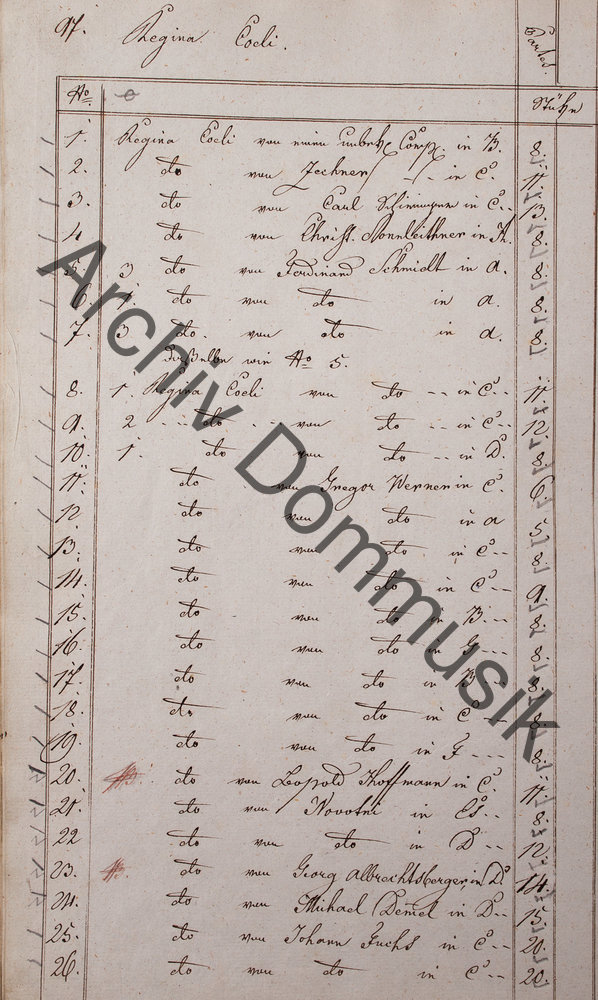 97. Regina Coeli. Partes.
No Stücke
1. Regina Coeli von einem unbek Comp. in B. 8.
2. do von Zechner -- in C. 11.
3. do von Carl in C-- 13.
4. do von Christ. Sonnleithner in A. 8.
5. 3 do von Ferdinand Schmidt in a. 8.
6. 1. do von do in a. 8.
7. 3 do. von do in a. 8.
Dasselbe wie No 5.
8. 1. Regina Coeli von do -- in C-- 11.
9. 2 -- do -- von do -- in C-- 12
10. 1. do von do -- in D. 8.
11. do von Gregor Werner in C. 6.
12 do von do in a 5
13. do von do in C-- 8.
14. do von do in C-- 9.
15. do von do in B-- 8.
16. do von do in G--- 8.
17. do von do in B-- 8.
18. do von do in C-- 8.
19. do von do in F--- 8.
20. do von Leopold Hoffmann in C. 11.
21. do von Novotni in Es-- 8.
22 do von do in D-- 12
23. do von Georg Albrechtsberger in D. 14.
24. do von Michael Demel in D-- 15.
25. do von Johann Fuchs in C-- 20.
26. do von do in C-- 20.
Archiv Dommusik